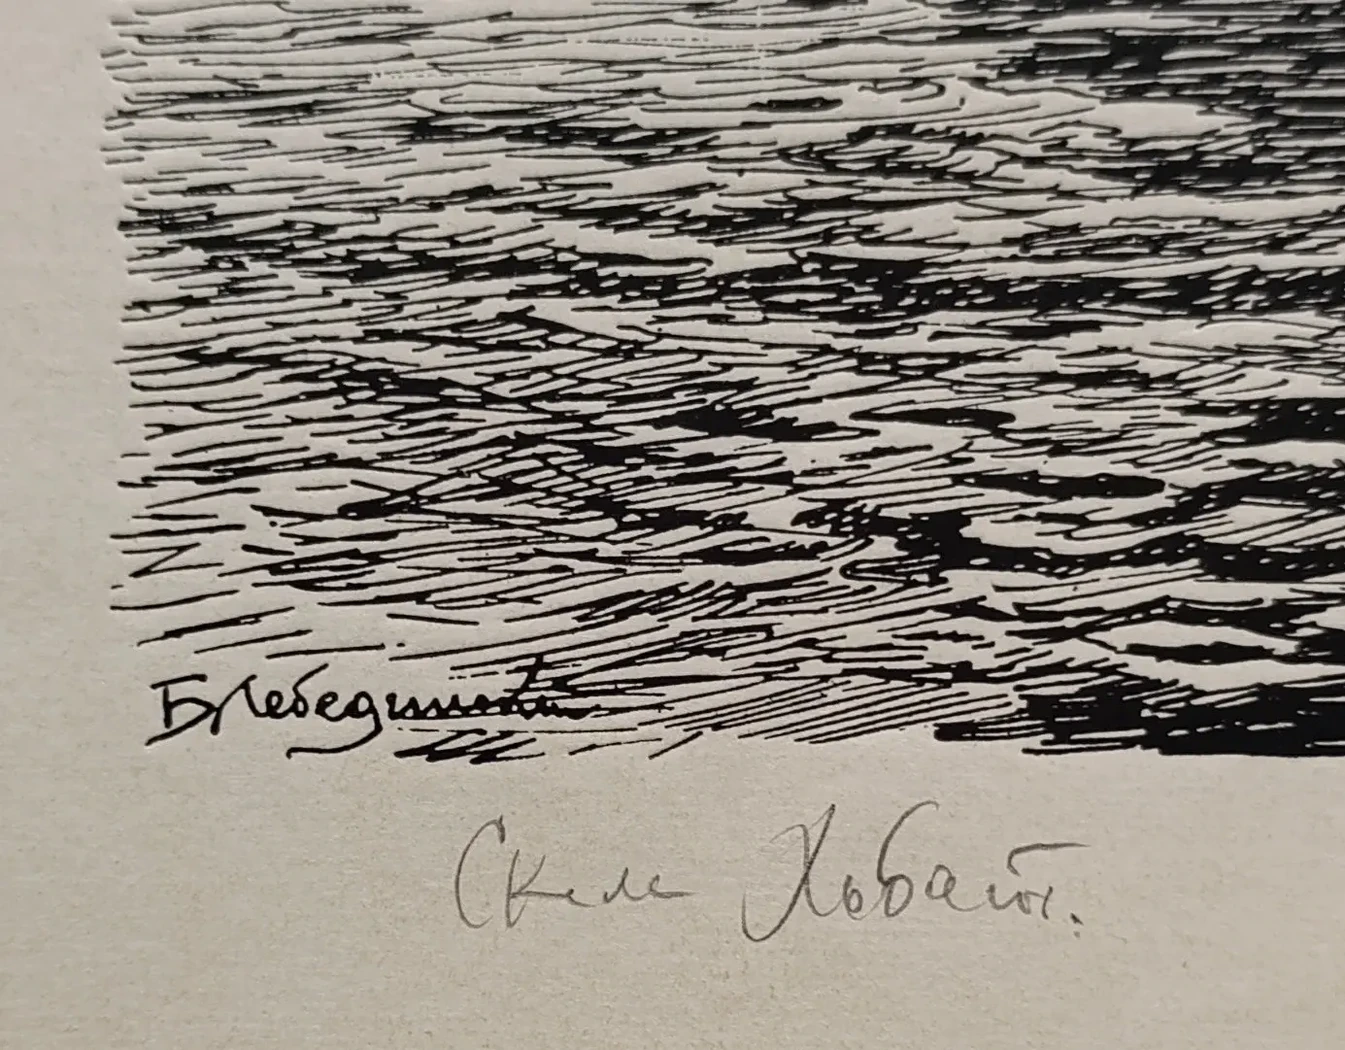 БЛебединский
Скала Хобот.